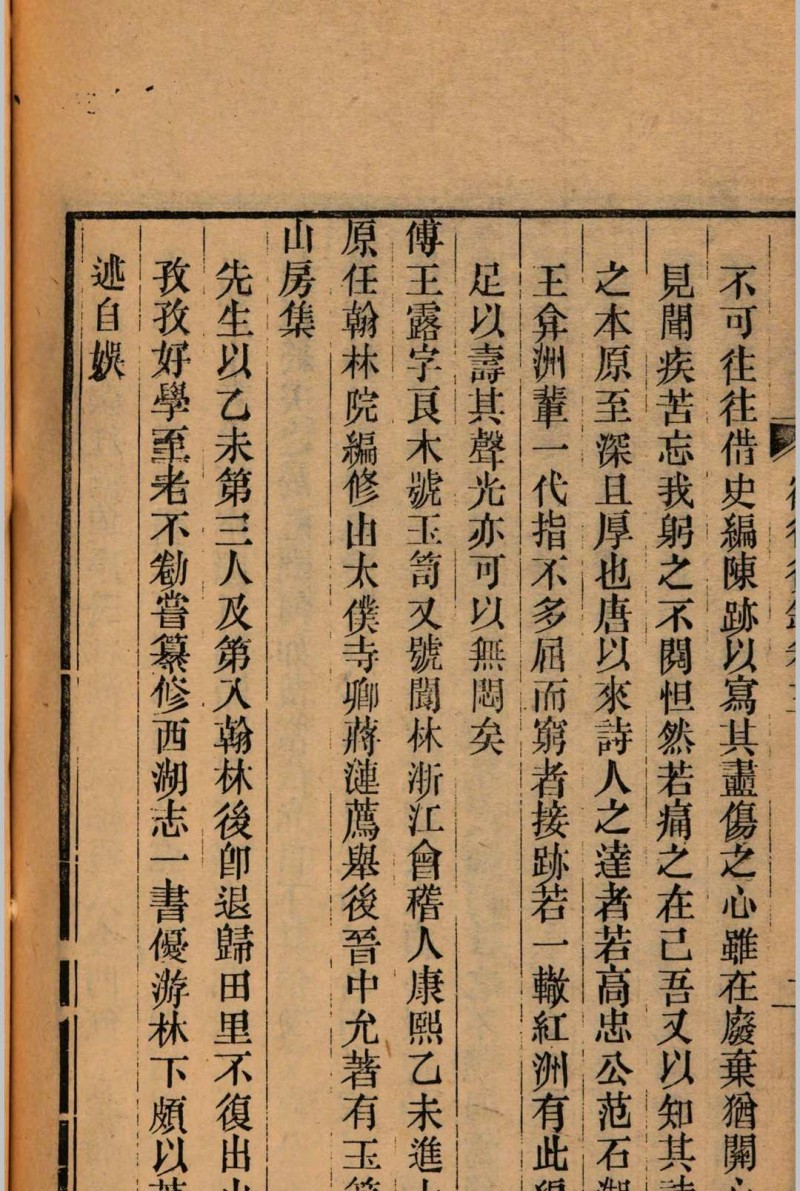 不可往往借史編陳跡以寫其盡傷之心雖在廢棄猶關心
見聞疾苦忘我躬之不閱怛然若痛之在己吾又以知其詩
之本原至深且厚也唐以來詩人之達者若高忠公范石湖
王弇洲輩一代指不多屈而窮者接跡若一轍紅洲有此編
足以壽其聲光亦可以無悶矣
傅王露字良木號玉笥又號閬林浙江會稽人康熙乙未進士
原任翰林院編修由太僕寺卿蔣漣薦舉後晉中允著有玉笥
山房集
先生以乙未第三人及第入翰林後卽退歸田里不復出山
孜孜好學至老不勌嘗纂修西湖志一書優游林下頗以著
述自娛